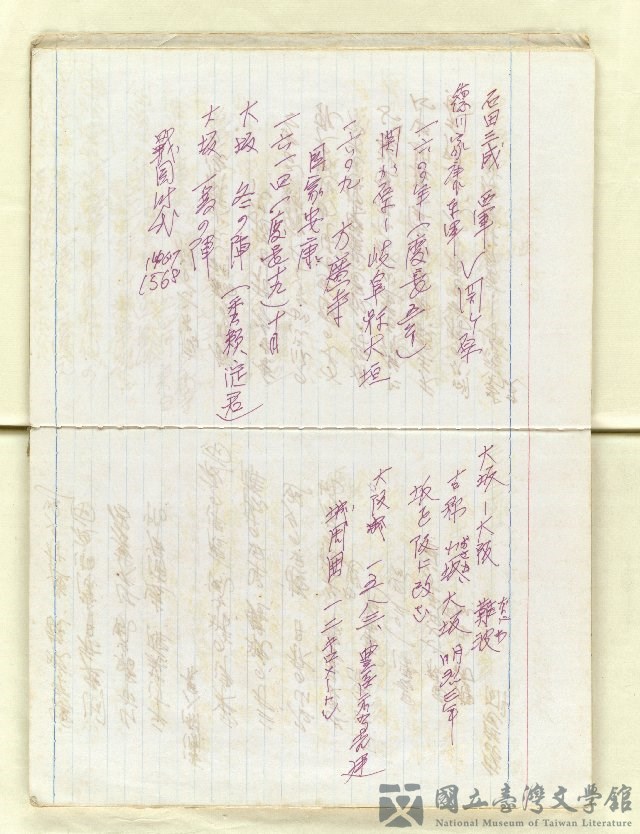 石田三成 西軍
德川家康 東軍 〉関ケ原
一六〇〇年ー(慶長五年)
関が原ー岐阜縣大垣
一六〇九 方廣寺
国家安康
一六一四(慶長十九)十月
大坂 冬の陣 (秀頼 淀君)
大坂 夏の陣
戰国时代 1467 1568
大坂ー大阪 難波 なにわ
古称 大坂 明治三年
坂を阪に改む
大阪城 一五八三、豊臣秀吉建
城周囲 一二
國立臺灣文學館
National Museum of Taiwan Literature